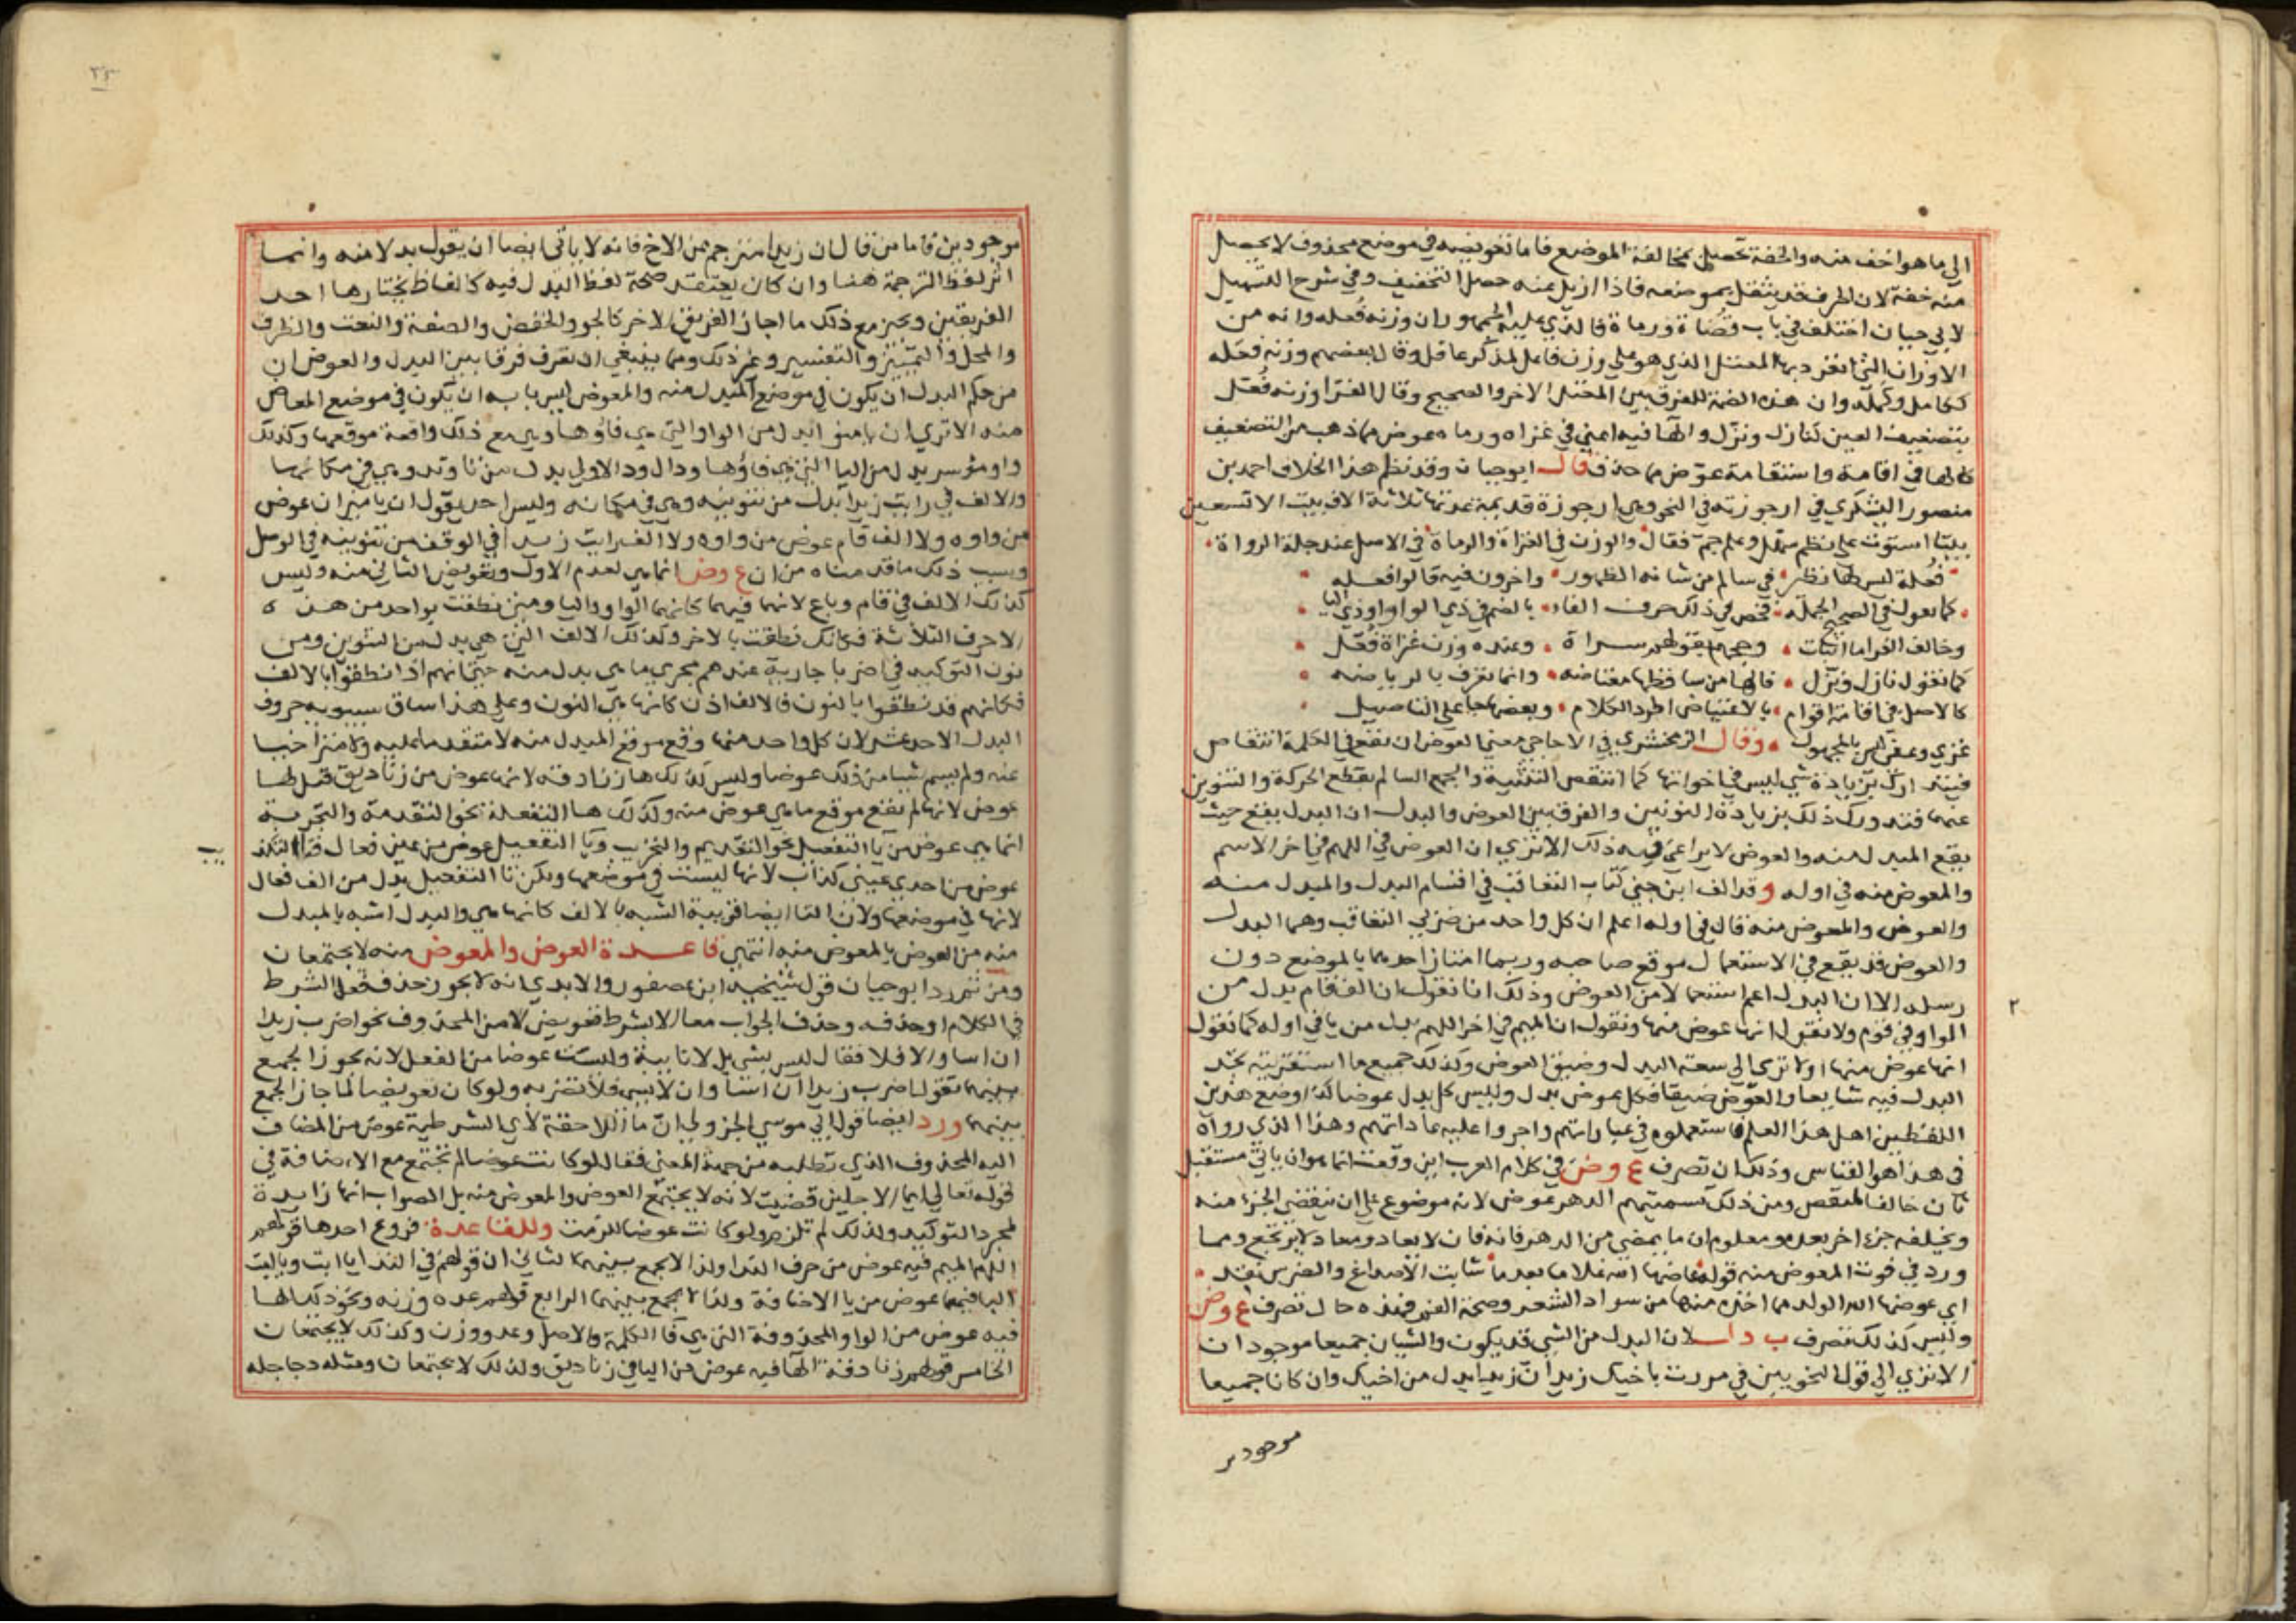 الي ما هو اخف منه والخفة تحصيل بمخالفة الموضع فاما تعويضه في موضع محذوف لا يحصل
منه خفة لان الحرف قد يثقل بموضعه فاذا ازيل عنه حصل التخفيف وفي شرح التسهيل
لابي حيان اختلف في باب قضاة ورماة فالذي عليه الجمهور ان وزنه فعله وانه من
الاوزان التي انفرد بها المعتل الذي هو علي وزن فاعل لمذكر عاقل وقال بعضهم وزنه فعله
ككامل وكمله وان هذه الضمة للفرق بين المعتل الاخر والصحيح وقال الفرا وزنه فعل
بتضعيف العين كنازل ونزل والها فيه اعني في غزاه ورماه عوض مما ذهب من التضعيف
كالها في اقامة واستقامة عوض مما حذف قال ابو حيان وقد نظم هذا الخلاف احمد بن
منصور اليشكري في ارجوزته في النحو وهي ارجوزة قديمة عدتها ثلاثة الاف بيت الا تسعين
بيتا استوت علي نظم سهل وعلم جم فقال والوزن في الغزاة والرماة في الاصل عند جلة الرواة
فعلة ليس لها نظير في سالم من شانه الظهور واخرون فيه قالوا فعله
كما تقول في الصحيح الحمله فخص في ذلك حرف الفاء بالضم في ذي الواو او ذي اليا
وخالف الفرا ما انبات وحجهم بقولهم سراة وعنده وزن غزاة فعل
كما تقول نازل ونزل فالها من ساقطها معتاضه وانما تعرف بالرياضه
كالاصل في اقامة اقوام بالاعتياض اطرد الكلام وبعضها جا علي التاصيل
غزي وعفي ليس بالمجهول وقال الزمخشري في الاحاجي معني العوض ان يقع في الكلمة انتقاص
فيتدارك بزيادة شي ليس في اخواتها كما انتقص التثنية والجمع السالم بقطع الحركة والتنوين
عنهما فتدورك ذلك بزيادة النونين والفرق بين العوض والبدل ان البدل يقع حيث
يقع المبدل منه والعوض لا يراعي فيه ذلك الا تري ان العوض في اللهم في اخر الاسم
والمعوض منه في اوله وقد الف ابن جني كتاب التعاقب في اقسام البدل والمبدل منه
والعوض والمعوض منه قال في اوله اعلم ان كل واحد من ضربي التعاقب وهما البدل
والعوض قد يقع في الاستعمال موقع صاحبه وربما امتاز احدهما بالموضع دون
رسله الا ان البدل اعم استعمالا من العوض وذلك انا نقول ان الف قام بدل من
الواو في قوم ولا نقول انها عوض منها ونقول ان الميم في اخر اللهم بدل من يا في اوله كما نقول
انها عوض منها اولا تري الي سعة البدل وضيق العوض وكذلك جميع ما استقريته تجد
البدل فيه شايعا والعوض ضيقا فكل عوض بدل وليس كل بدل عوضا كذا وضع هذين
اللفظين اهل هذا العلم فاستعملوه في عباراتهم واجروا عليه عاداتهم وهذا الذي رواه
في هذا هو القياس وذلك ان تصرف ع وض في كلام العرب اين وقعت انما هو ان ياتي مستقبل
ثان خالفا لمنقص ومن ذلك تسميتهم الدهر عوض لانه موضوع علي ان ينقضي الجزء منه
ويخلفه جزء اخر بعده ومعلوم ان ما يمضي من الدهر فانه فان لا يعاد ومعاد لا يرتجع ومما
ورد في فوت المعوض منه قوله عاضها الله غلاما بعد ما شابت الاصداغ والضرس نقد
اي عوضها الله الولد مما اخذه منها من سواد الشعر وصحة الفم فهذه حال تصرف ع وض
وليس كذلك تصرف ب د ل لان البدل من الشي قد يكون والشيان جميعا موجودان
الا تري الي قول النحويين في مررت باخيك زيد ان زيدا بدل من اخيك وان كانا جميعا
موجودين
٢
٢٣
موجودين فاما من قال ان زيدا مترجم عن الاخ فانه لا ياتي ايضا ان يقول بدلا منه وانما
اثر لفظ الترجمة هنا وان كان يعتقد صحة لفظ البدل فيه كالفاظ يختارها احد
الفريقين ويجيز مع ذلك ما اجاز الفريق الاخر كالجر والخفض والصفة والنعت والظرف
والمحل والتمييز والتفسير وغير ذلك ومما ينبغي ان تعرف فرقا بين البدل والعوض ان
من حكم البدل ان يكون في موضع المبدل منه والمعوض ليس بابه ان يكون في موضع المعاض
منه الا تري ان يا ميزان بدل من الواو التي هي فاؤها وهي مع ذلك واقعة موقعها وكذلك
واو موسر بدل من اليا التي هي فاؤها ودال ود الاولي بدل من تا وتد وهي في مكانها
والالف في رايت زيدا بدل من تنوينه وهي في مكانه وليس احد يقول ان يا ميزان عوض
من واوه ولا الف قام عوض من واوه ولا الف رايت زيدا في الوقف من تنوينه في الوصل
وسبب ذلك ما قدمناه من ان ع وض انما هي لعدم الاول وتعويض الثاني منه وليس
كذلك الالف في قام وباع لانها فيهما كانها الواو واليا ومتي نطقت بواحد من هذه
الاحرف الثلاثة فكانك نطقت بالاخر وكذلك الالف التي هي بدل من التنوين ومن
نون التوكيد في اضربا جارية عندهم مجري ما هي بدل منه حتي انهم اذا نطقوا بالالف
فكانهم قد نطقوا بالنون فالالف اذن كانها هي النون وعلي هذا ساق سيبويه حروف
البدل الاحد عشر لان كل واحد منها وقع موقع المبدل منه لا متقدما عليه ولا متراخيا
عنه ولم يسم شيا من ذلك عوضا وليس كذلك ها زنادقة لانها عوض من زناديق قيل لها
عوض لانها لم تقع موقع ما هي عوض منه وكذلك ها التفعلة نحو التقدمة والتجربة
انما هي عوض من يا التفعيل نحو التقديم والتجريب ويا التفعيل عوض من عين فعال فتا
عوض من احدي عيني كذاب لانها ليست في موضعها ولكن تا التفعيل بدل من الف فعال
لانها في موضعها ولان التا ايضا قريبة الشبه بالالف كانها هي والبدل اشبه بالمبدل
منه من العوض بالمعوض منه انتهي قاعدة العوض والمعوض منه لا يجتمعان
ومن ثم رد ابو حيان قول شيخيه ابن عصفور والابدي انه لا يجوز حذف فعل الشرط
في الكلام او حذفه وحذف الجواب معا الا بشرط تعويض لا من المحذوف نحو اضرب زيدا
ان اسا والا فلا فقال ليس بشي بل لا نايبة وليست عوضا من الفعل لانه يجوز الجمع
بينهما تقول اضرب زيدا ان اسا وان لا يسي فلا تضربه ولو كان تعويضا لما جاز الجمع
بينهما ورد ايضا قول ابي موسي الجزولي ان ما اللاحقة لاي الشرطية عوض من المضاف
اليه المحذوف الذي تطلبه من جهة المعني فقال لو كانت عوضا لم تجتمع مع الاضافة في
قوله تعالي ايما الاجلين قضيت لانه لا يجتمع العوض والمعوض منه بل الصواب انها زايدة
لمجرد التوكيد ولذلك لم تلزم ولو كانت عوضا للزمت وللقاعدة فروع احدها قولهم
اللهم الميم فيه عوض من حرف الندا ولذا لا يجمع بينهما الثاني ان قولهم في الندا يا ابت ويا امت
التا فيهما عوض من يا الاضافة ولذا لا يجمع بينهما الرابع قولهم عده وزنه ونحو ذلك الها
فيه عوض من الواو المحذوفة التي هي فا الكلمة والاصل وعد ووزن وكذلك لا يجتمعان
الخامس قولهم زنادقة الها فيه عوض من اليا في زناديق ولذلك لا يجتمعان ومثله دجاجله